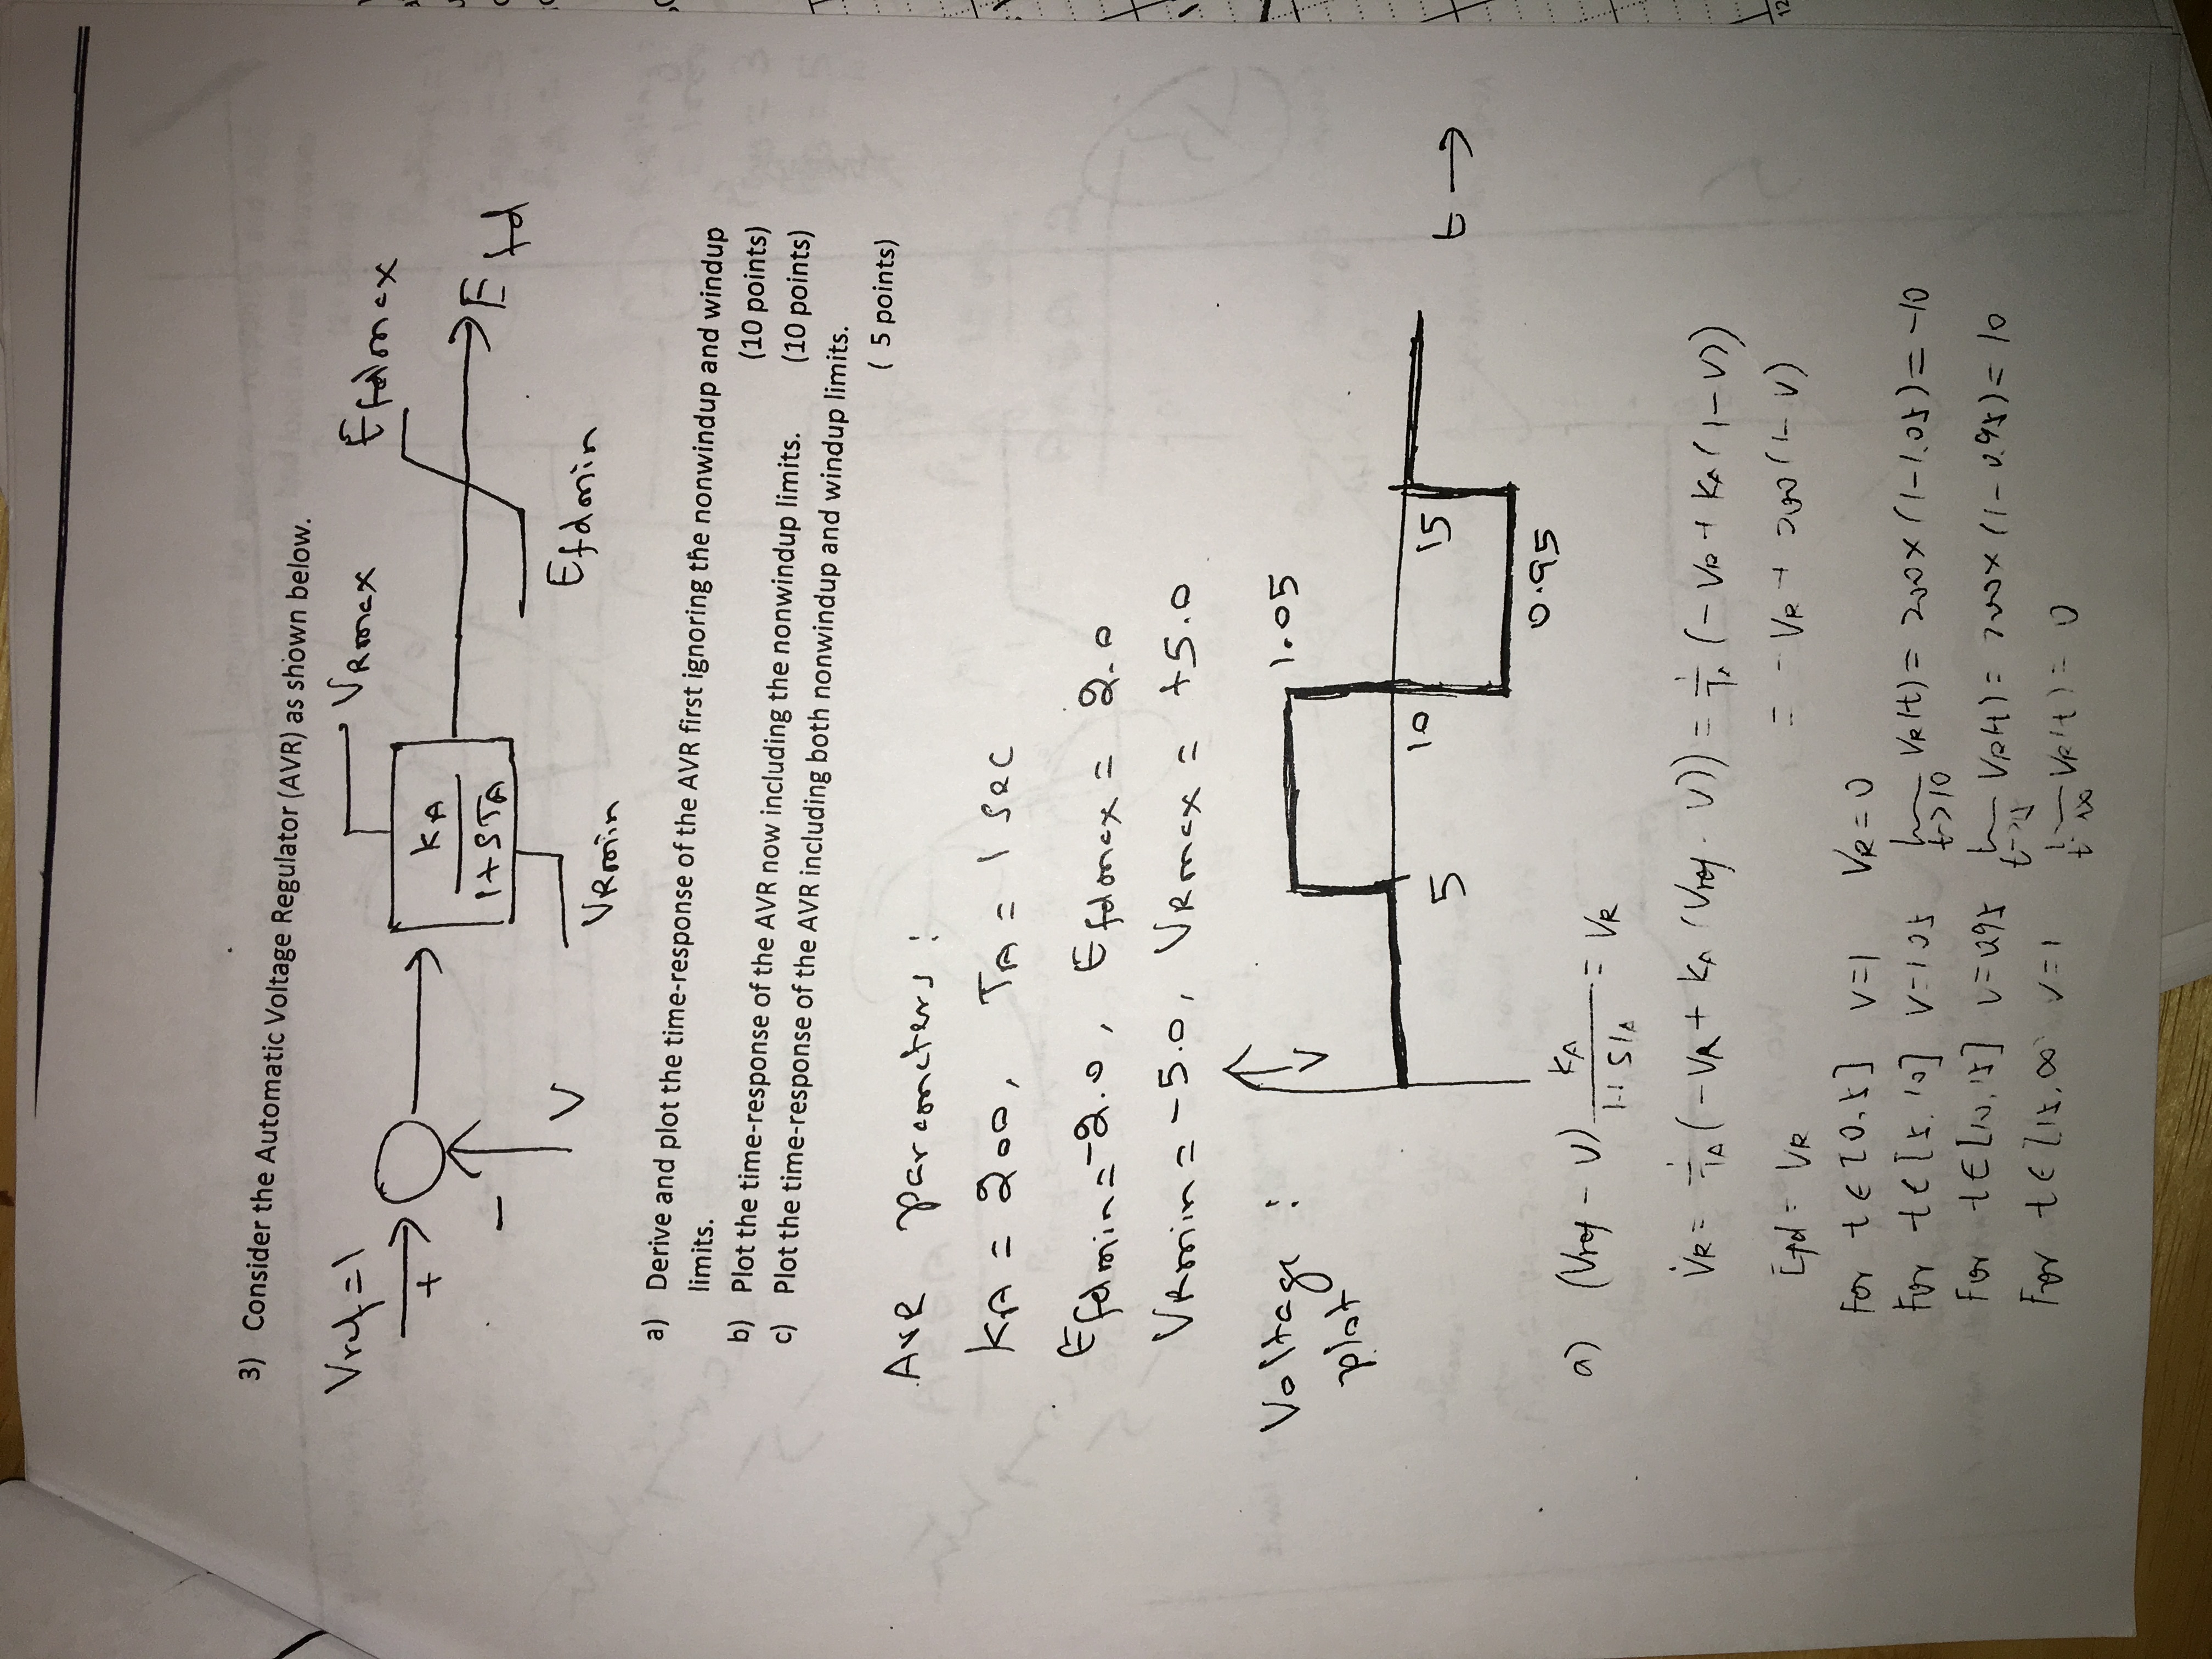 3) Consider the Automatic Voltage Regulator (AVR) as shown below.
Vref = 1
+
−
V
VRmax
KA
1+STA
VRmin
Efdmax
Efd
Efdmin
a) Derive and plot the time-response of the AVR first ignoring the nonwindup and windup
limits. (10 points)
b) Plot the time-response of the AVR now including the nonwindup limits. (10 points)
c) Plot the time-response of the AVR including both nonwindup and windup limits.
( 5 points)
AVR parameters :
KA = 200, TA = 1 sec
Efdmin = -2.0, Efdmax = 2.0
VRmin = -5.0, VRmax = +5.0
Voltage :
plot
V
1.05
5
10
15
t →
0.95
a) (Vref - V) KA / 1+STA = VR
V̇R = 1/TA (-VR + KA (Vref - V)) = 1/TA (-VR + KA (1-V))
Efd = VR = -VR + 200(1-V)
For t ∈ [0,5] V=1 VR = 0
For t ∈ [5,10] V=1.05 lim t→10 VR(t) = 200×(1-1.05) = -10
For t ∈ [10,15] V=0.95 lim t→15 VR(t) = 200×(1-0.95) = 10
For t ∈ [15,∞ V=1 lim t→∞ VR(t) = 0
12